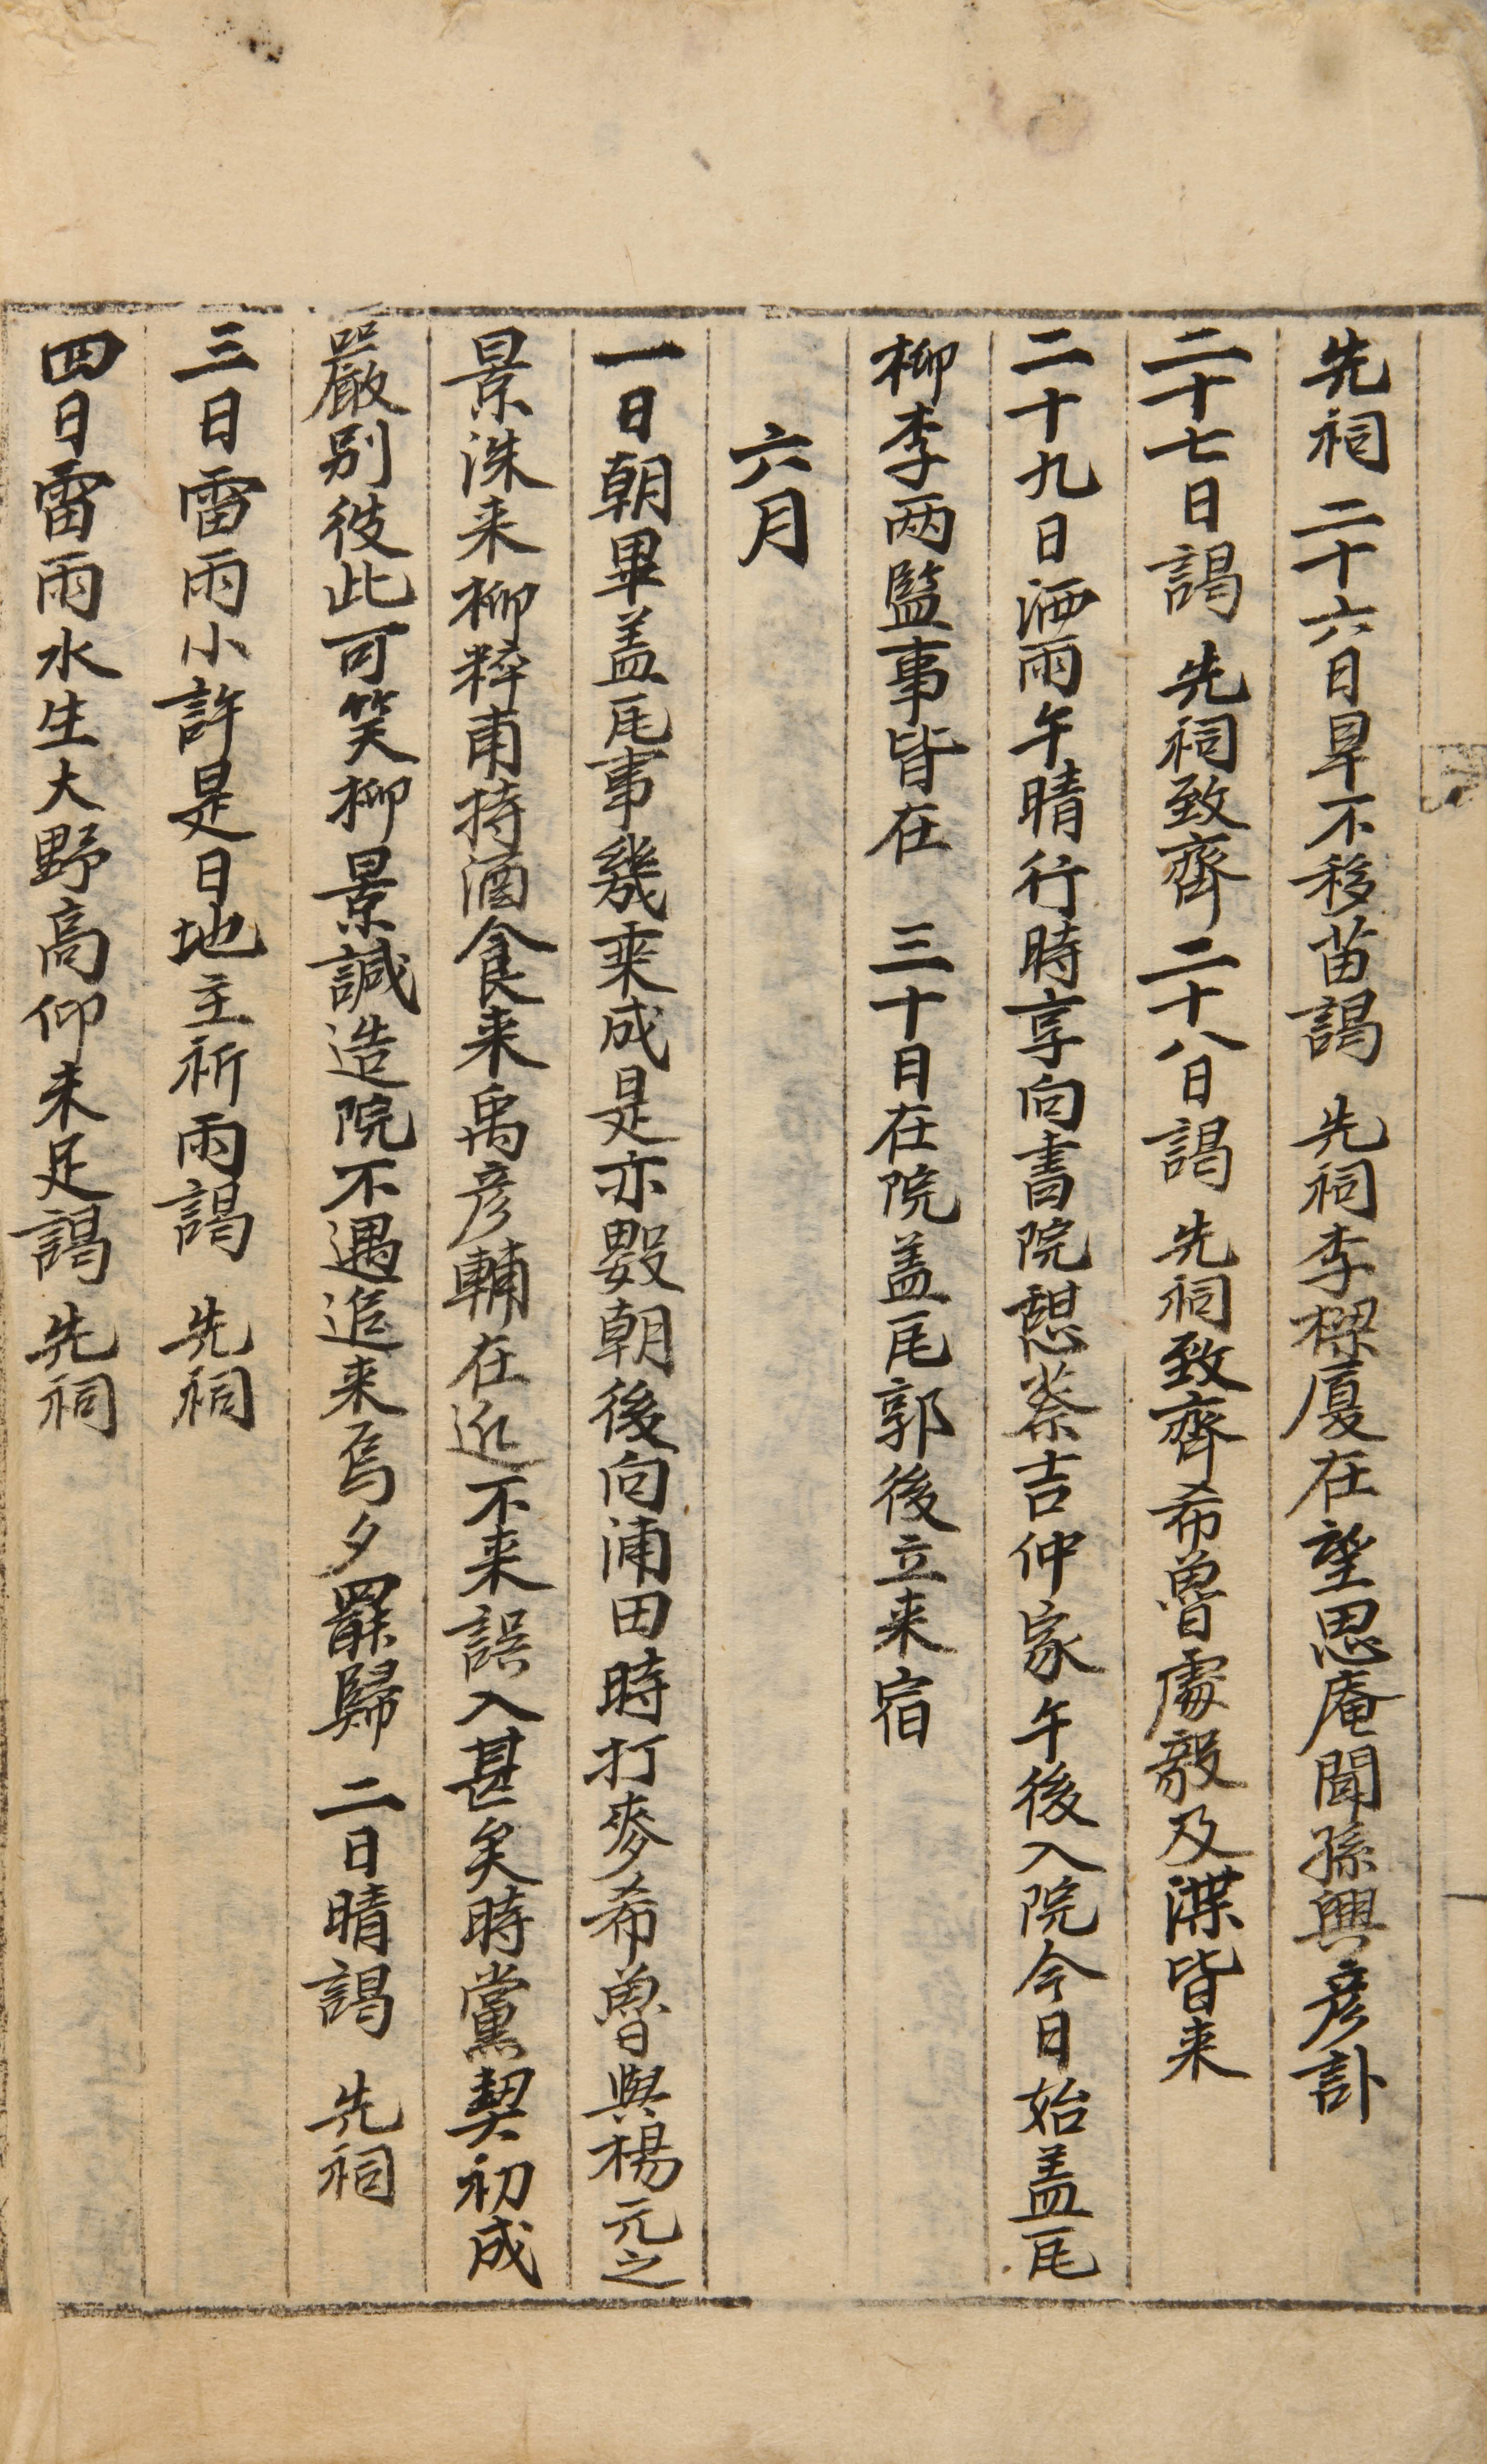 先祠 二十六日旱不移苗謁 先祠李樑厦在望思庵聞孫興彦訃
二十七日謁 先祠致齊 二十八日謁 先祠致齊希魯處毅及渫皆来
二十九日洒雨午晴行時享向書院憇蔡吉仲家午後入院今日始盖瓦
柳李两監事皆在 三十日在院盖瓦郭後立来宿
六月
一日朝畢盖瓦事幾乗成是亦數朝後向浦田時打麥希魯與楊元之
景洙来柳粹甫持酒食来禹彦輔在近不来誤入甚矣時黨契初成
嚴別彼此可笑柳景諴造院不遇追来焉夕罷歸 二日晴謁 先祠
三日雷雨小許是日地主祈雨謁 先祠
四日雷雨水生大野高仰未足謁 先祠